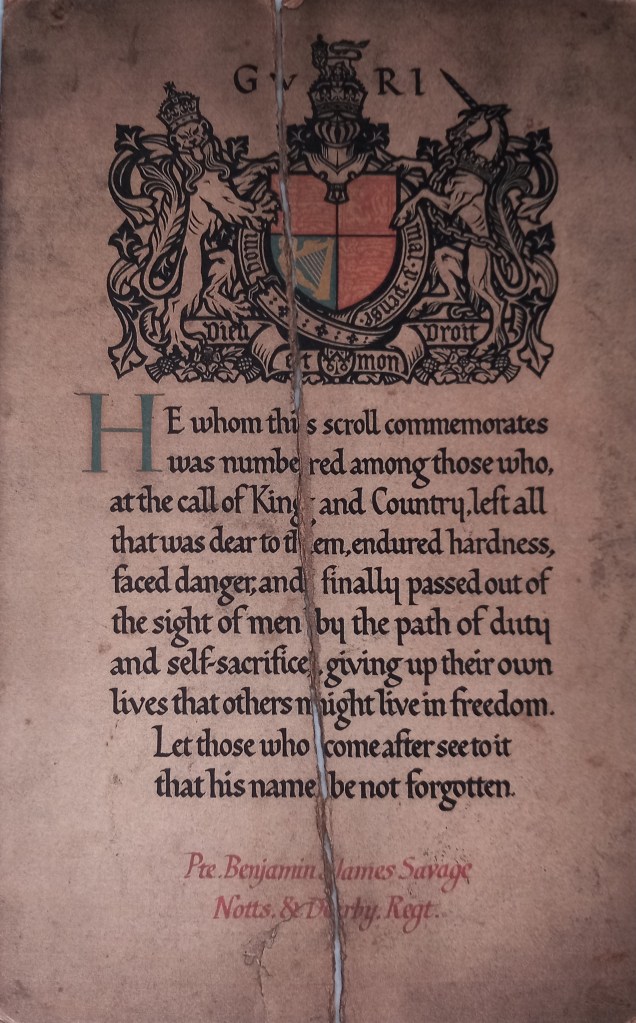 GVRI
honi
mal·y·pense
Dieu
et mon
Droit
HE whom this scroll commemorates
was numbered among those who,
at the call of King and Country, left all
that was dear to them, endured hardness,
faced danger, and finally passed out of
the sight of men by the path of duty
and self-sacrifice, giving up their own
lives that others might live in freedom.
Let those who come after see to it
that his name be not forgotten.
Pte. Benjamin James Savage
Notts. & Derby. Regt.